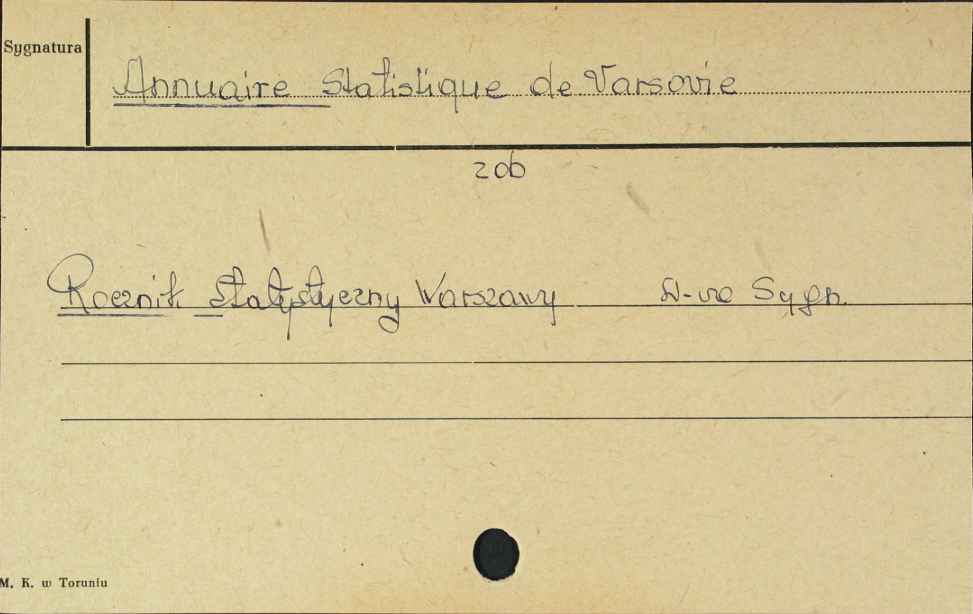 Sygnatura
Annuaire Statistique de Varsovie
zob
Rocznik Statystyczny Warszawy Sygn.
M. K. w Toruniu